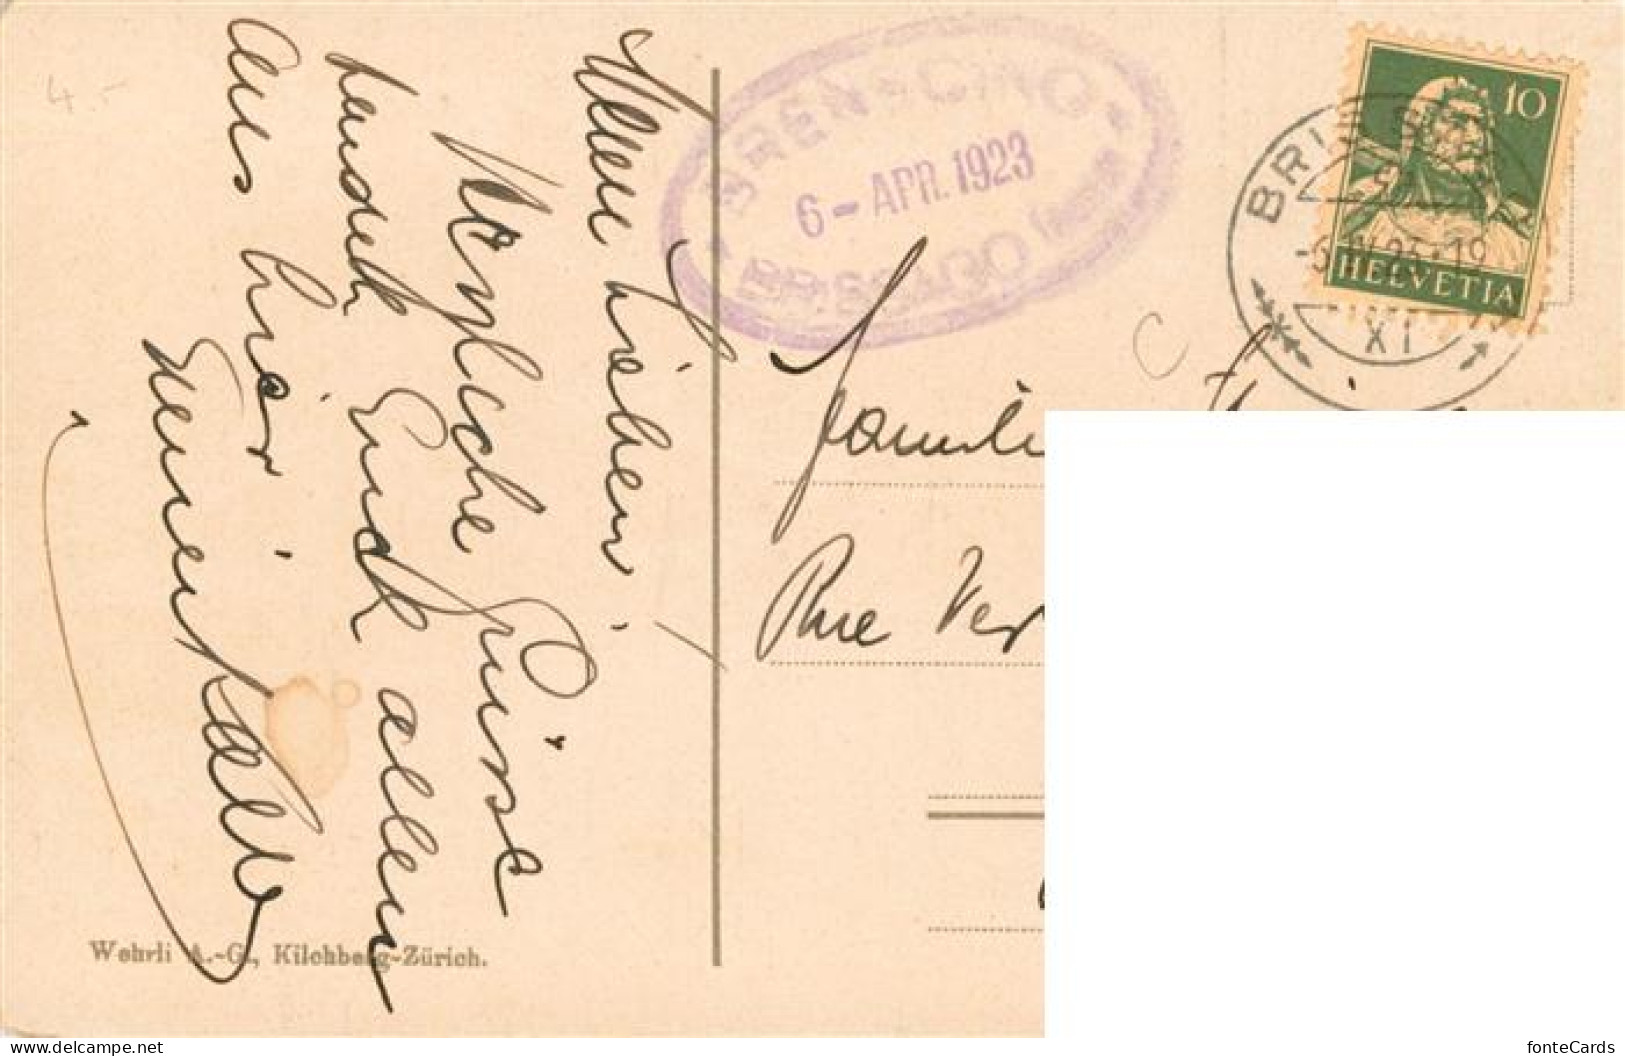 Meine Lieben!
Herzliche Grüsse
sendet Euch allen
aus hier
4.-
BRENSCINO
6 - APR. 1923
BRISSAGO
10
HELVETIA
BRISSAGO
-6.IV.23.-19
XI
C
Familie
Rue Ver
Wehrli A.-G., Kilchberg-Zürich.
fonteCards
www.delcampe.net